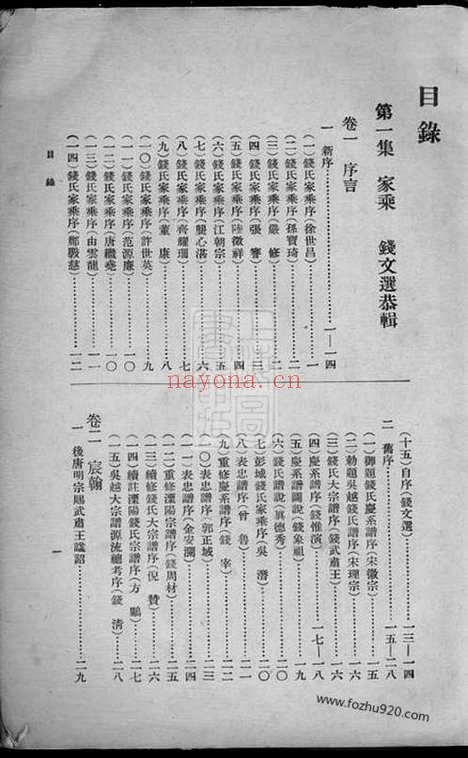 目錄
第一集　家乘　錢文選恭輯
卷一　序言
一　新序……一—一四
(一)錢氏家乘序(徐世昌)……一
(二)錢氏家乘序(孫寶琦)……二
(三)錢氏家乘序(嚴　修)……二
(四)錢氏家乘序(張　謇)……三
(五)錢氏家乘序(陸徵祥)……四
(六)錢氏家乘序(江朝宗)……五
(七)錢氏家乘序(龔心湛)……六
(八)錢氏家乘序(齊耀珊)……七
(九)錢氏家乘序(董　康)……八
(一〇)錢氏家乘序(許世英)……九
(一一)錢氏家乘序(范源廉)……一〇
(一二)錢氏家乘序(唐繼堯)……一〇
(一三)錢氏家乘序(由雲龍)……一一
(一四)錢氏家乘序(鄭毅慈)……一二
目錄
(十五)自序(錢文選)……一三—一四
二　舊序……一五—二八
(一)御題錢氏慶系譜序(宋徽宗)……一五
(二)勅題吳越錢氏譜序(宋理宗)……一六
(三)錢氏大宗譜序(錢武肅王)……一六
(四)慶系譜序(錢惟演)……一七—一八
(五)慶系譜圖說(錢象祖)……一九
(六)錢氏譜說(眞德秀)……二〇
(七)彭城錢氏家乘序(吳　潛)……二〇
(八)表忠譜序(曾　魯)……二一
(九)重修慶系譜序(錢　宰)……二二
(一〇)表忠譜序(郭正域)……二三
(一一)表忠譜序(金安瀾)……二四
(一二)重修溧陽宗譜序(錢周材)……二五
(一三)續修錢氏大宗譜序(倪　贊)……二六
(一四)續註溧陽錢氏宗譜序(方　鵬)……二七
(一五)吳越大宗譜源流總考序(錢　淸)……二八
卷二　宸翰
一　後唐明宗賜武肅王諡詔……二九
一
nayona.cn
www.fozhu920.com